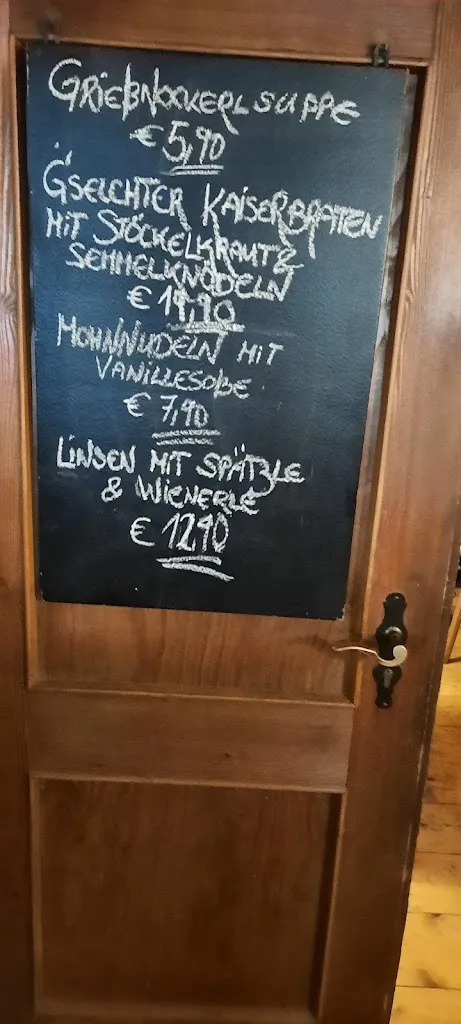 GRIEßNOCKERLSUPPE
€ 5,90
GSELCHTER KAISERBRATEN
MIT STÖCKELKRAUT &
SEMMELKNÖDELN
€ 14,90
MOHNNUDELN MIT
VANILLESOßE
€ 7,90
LINSEN MIT SPÄTZLE
& WIENERLE
€ 12,90